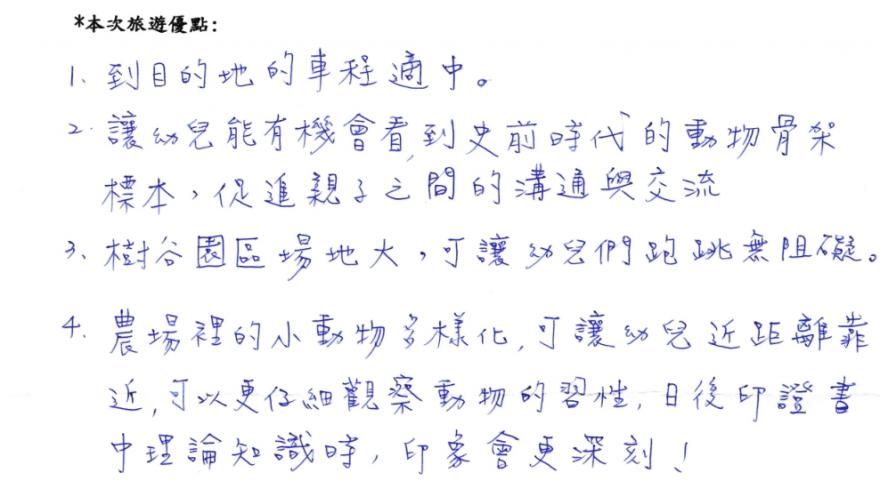 *本次旅遊優點:
1、到目的地的車程適中。
2.讓幼兒能有機會看到史前時代的動物骨架
標本,促進親子之間的溝通與交流
3、樹谷園區場地大,可讓幼兒們跑跳無阻礙。
4.農場裡的小動物多樣化,可讓幼兒近距離靠
近,可以更仔細觀察動物的習性,日後印證書
中理論知識時,印象會更深刻!